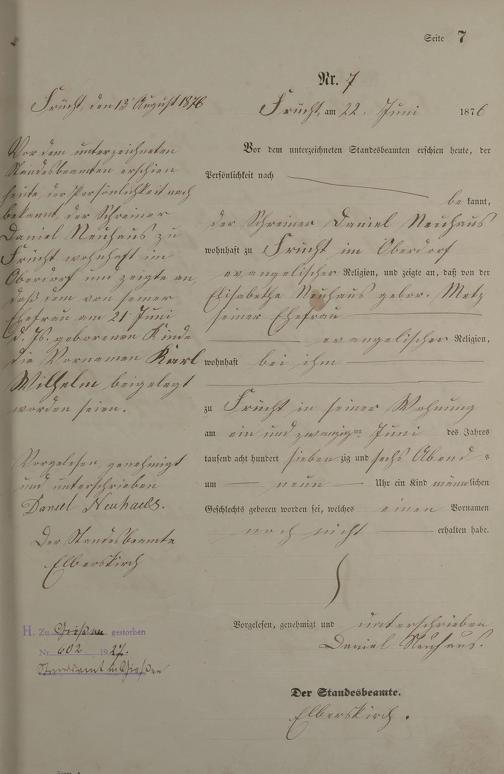 Seite 7
Nr. 7
Frücht, den 13 August 1876
Vor dem unterzeichneten
Standesbeamten erschien
heute, der Persönlichkeit nach
bekannt, der Schreiner
Daniel Neuhaus zu
Frücht wohnhaft im
Oberdorf und zeigte an
daß dem von seiner
Ehefrau am 21 Juni
d. Js. geborenen Kinde
die Vornamen Karl
Wilhelm beigelegt
worden seien.
Vorgelesen, genehmigt
und unterschrieben
Daniel Neuhaus.
Der Standesbeamte
Elberskirch
H. Zu Gießen gestorben
Nr. 602 1927.
Standesamt in Gießen
Frücht, am 22. Juni 1876
Vor dem unterzeichneten Standesbeamten erschien heute, der
Persönlichkeit nach
be kannt,
der Schreiner Daniel Neuhaus
wohnhaft zu Frücht im Oberdorf
evangelischer Religion, und zeigte an, daß von der
Elisabetha Neuhaus gebor. Metz
seiner Ehefrau
evangelischer Religion,
wohnhaft bei ihm
zu Frücht in seiner Wohnung
am ein und zwanzigten Juni des Jahres
tausend acht hundert sieben zig und sechs Abend s
um neun Uhr ein Kind männlichen
Geschlechts geboren worden sei, welches einen Vornamen
noch nicht erhalten habe.
Vorgelesen, genehmigt und unterschrieben
Daniel Neuhaus.
Der Standesbeamte.
Elberskirch.